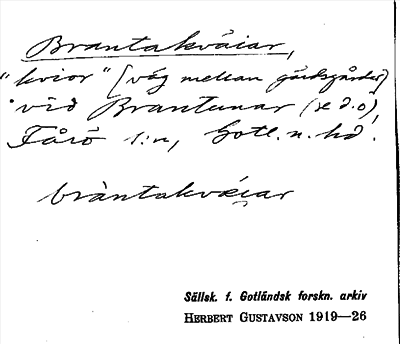 Brantakväiar,
"kvior" [väg mellan gärdsgårdar]
vid Brantunar (se d.o),
Fårö s:n, Gotl. n. hd.
bràntakväiar
Sällsk. f. Gotländsk forskn. arkiv
HERBERT GUSTAVSON 1919—26